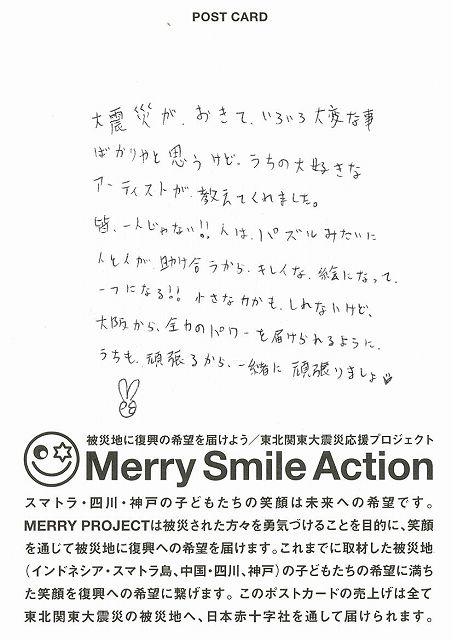 POST CARD
大震災が、おきて、いろいろ大変な事
ばかりやと思うけど、うちの大好きな
アーティストが、教えてくれました。
皆、一人じゃない!! 人は、パズルみたいに
人と人が、助け合うから、キレイな、絵になって、
一つになる!! 小さな力かも、しれないけど、
大阪から、全力のパワーを届けられるように、
うちも、頑張るから、一緒に頑張りましょ
被災地に復興の希望を届けよう／東北関東大震災応援プロジェクト
Merry Smile Action
スマトラ・四川・神戸の子どもたちの笑顔は未来への希望です。
MERRY PROJECTは被災された方々を勇気づけることを目的に、笑顔
を通じて被災地に復興への希望を届けます。これまでに取材した被災地
（インドネシア・スマトラ島、中国・四川、神戸）の子どもたちの希望に満ち
た笑顔を復興への希望に繋げます。このポストカードの売上げは全て
東北関東大震災の被災地へ、日本赤十字社を通して届けられます。